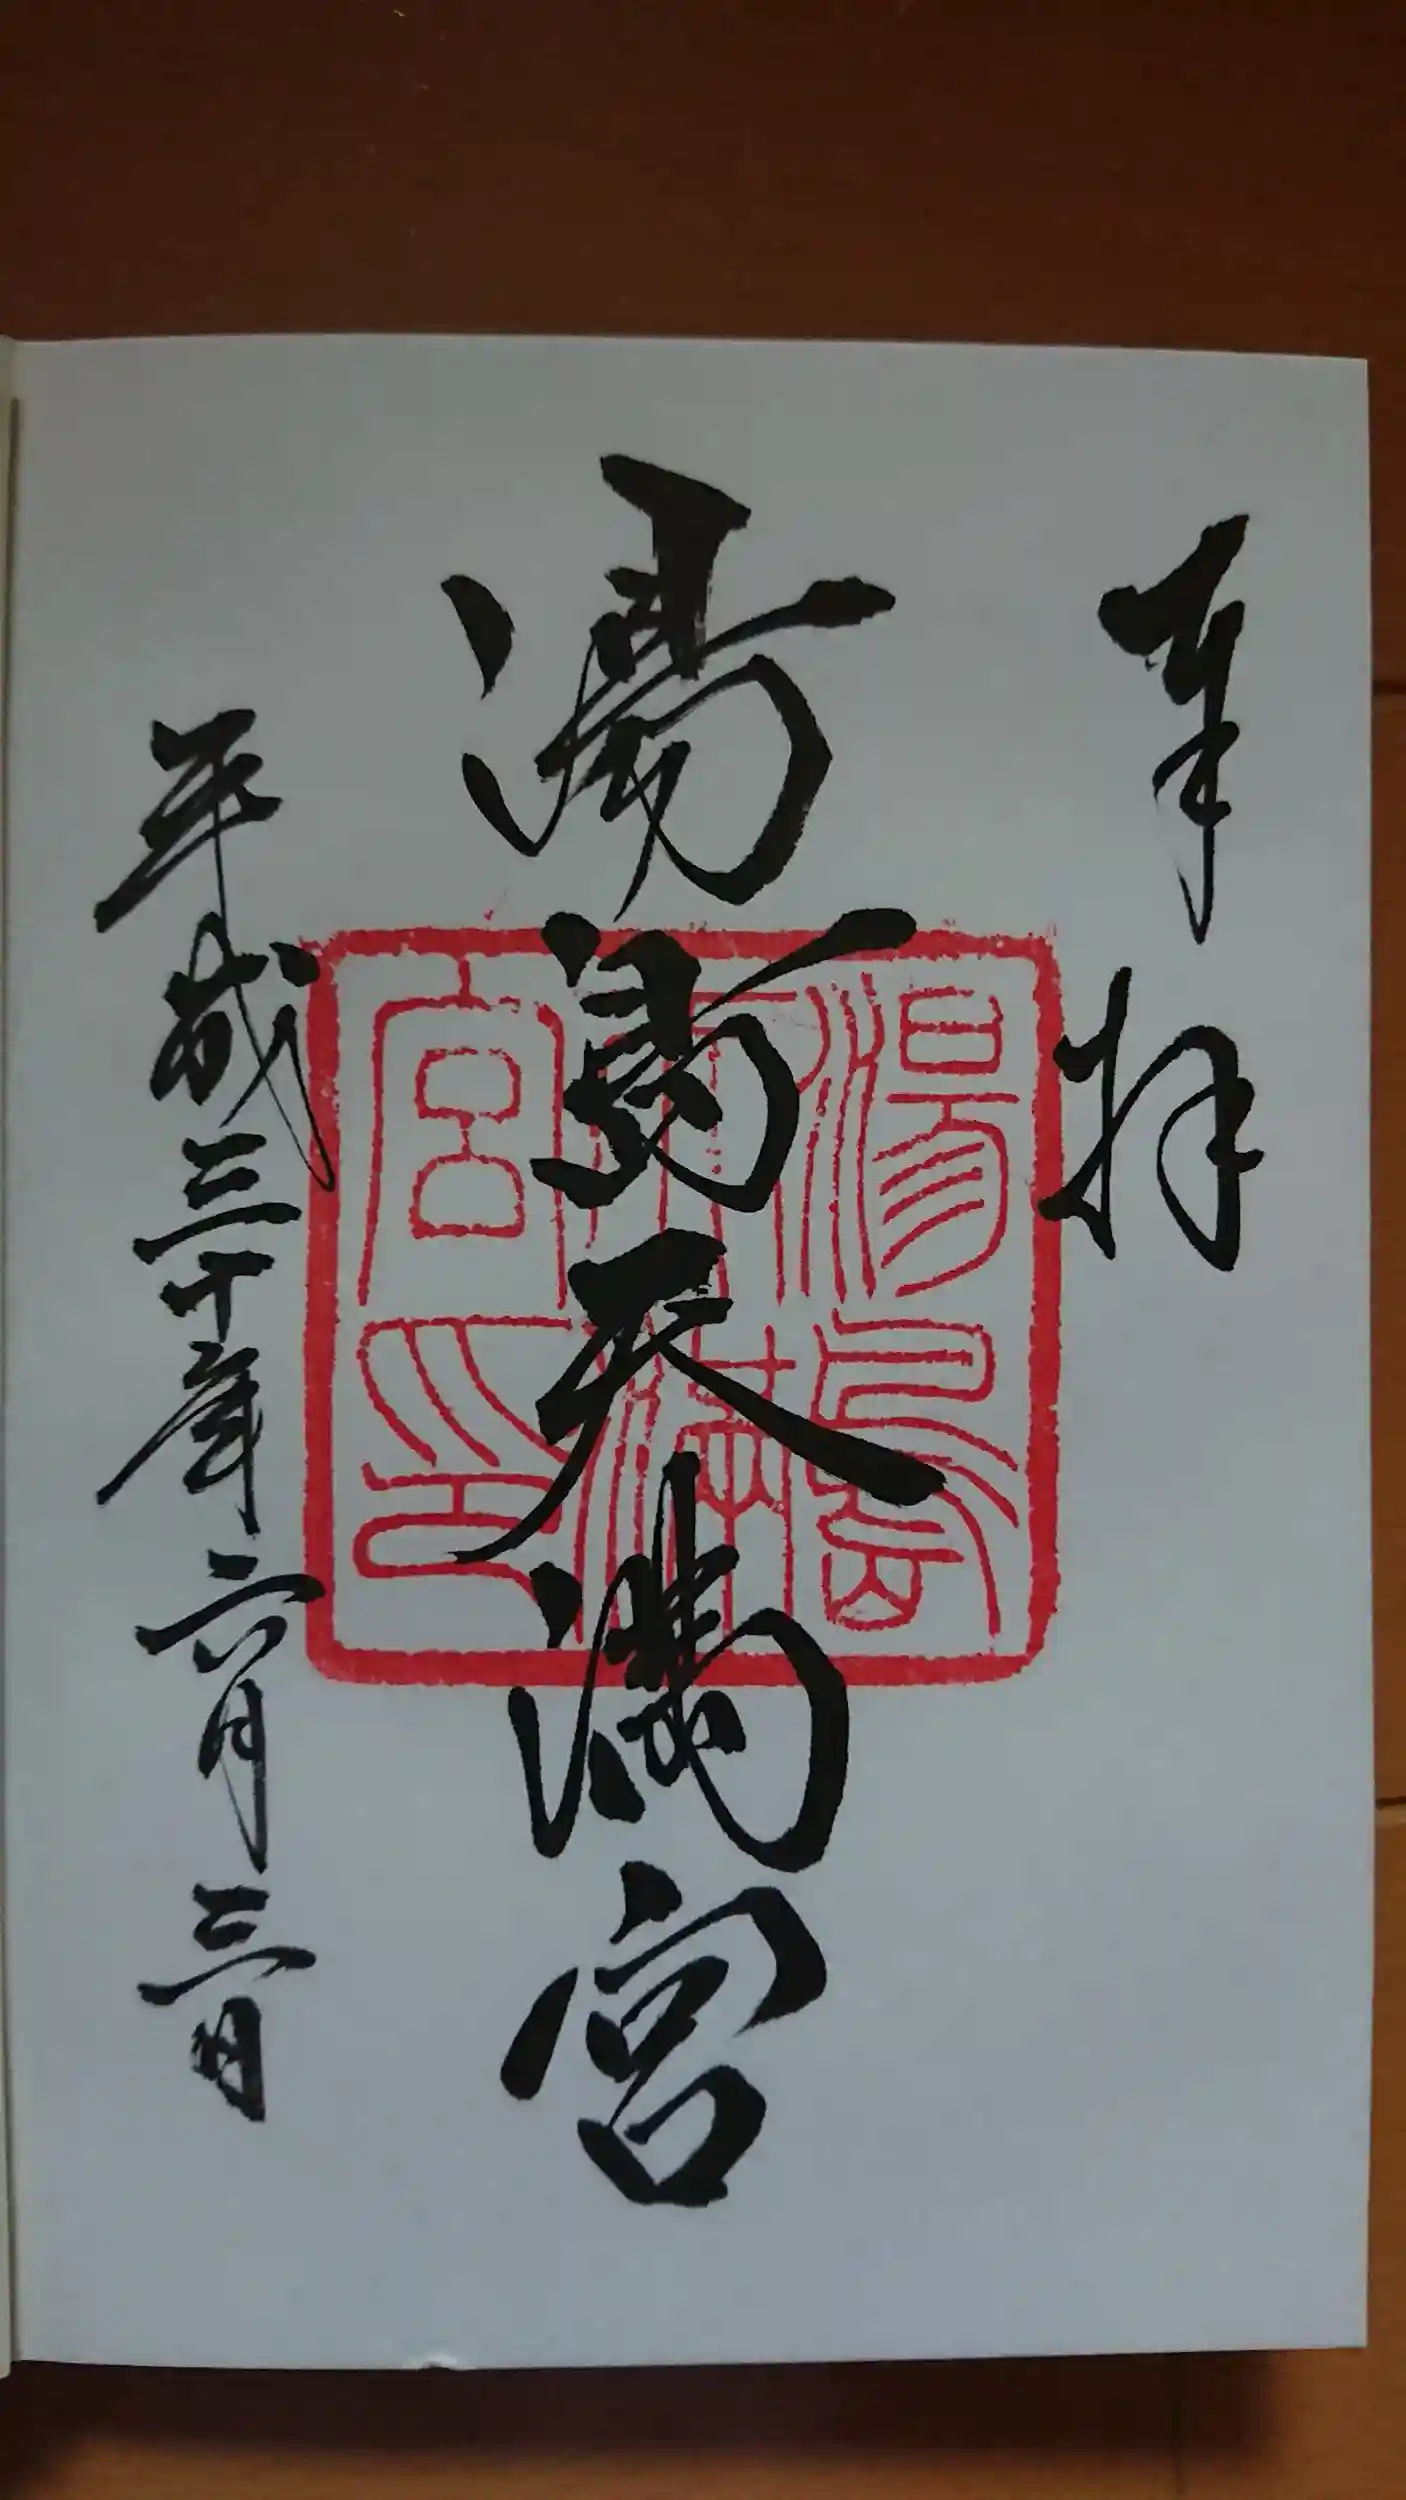 奉拝
湯島天満宮
平成三十年六月三日
湯島天満宮之印